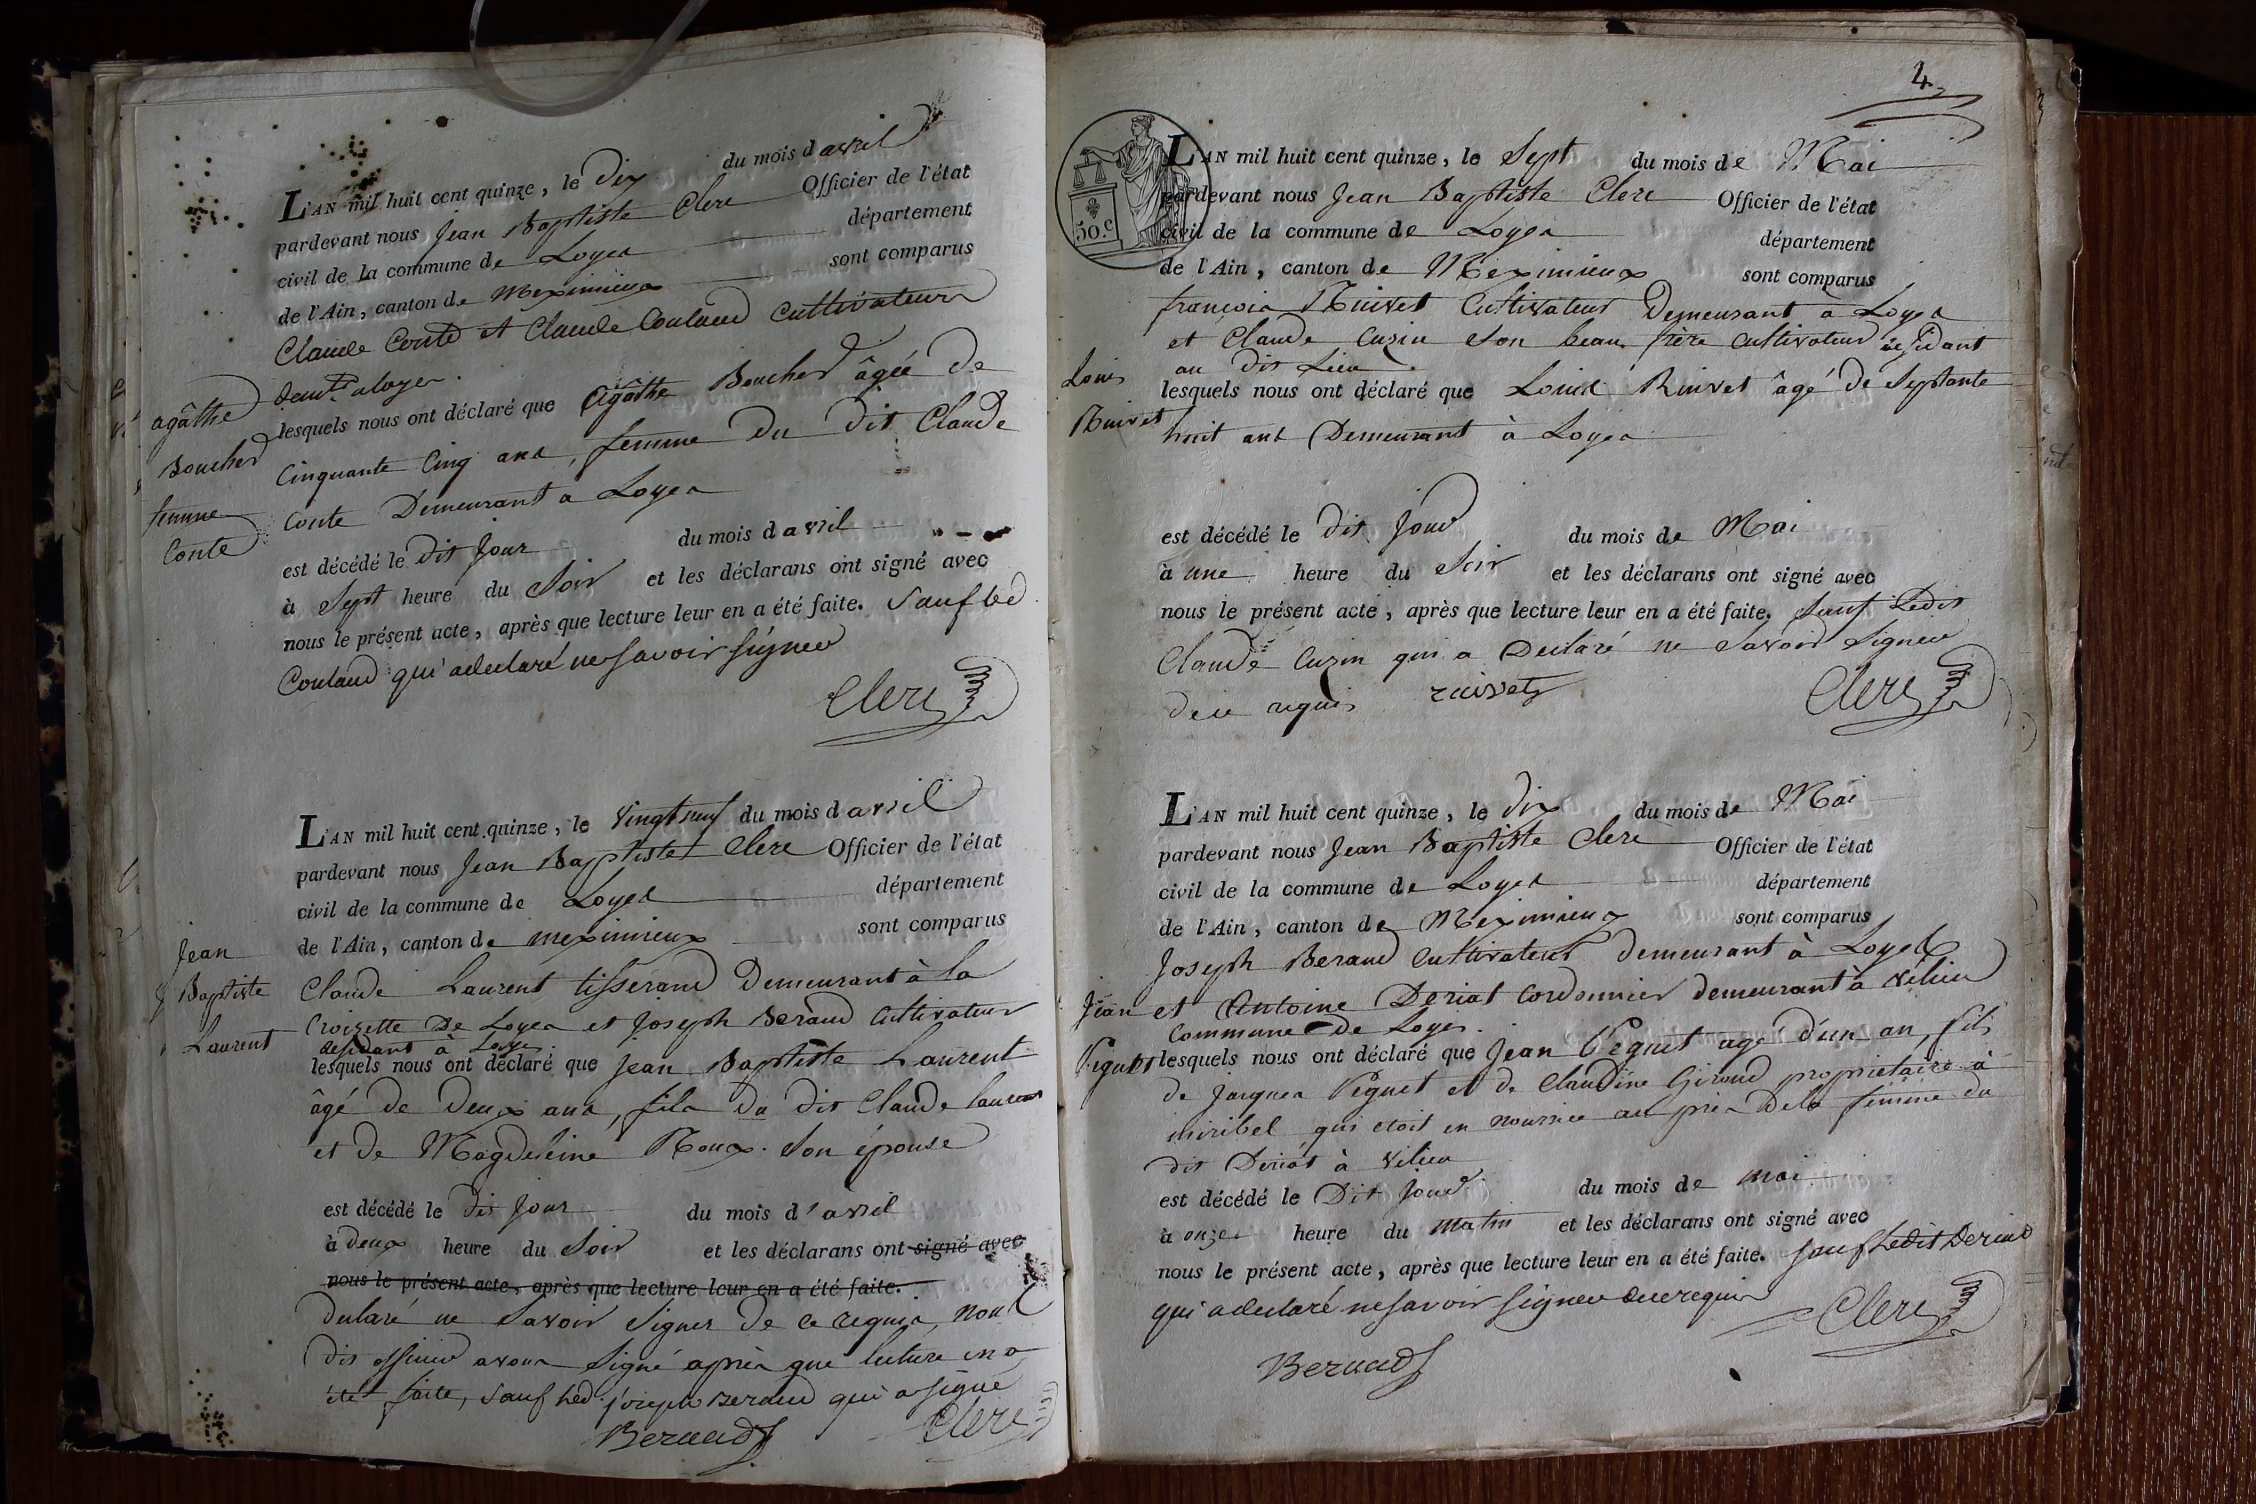 L'AN mil huit cent quinze, le dix du mois d avril
pardevant nous Jean Baptiste Clere Officier de l'état
civil de la commune de Loyes département
de l'Ain, canton de Meximieux sont comparus
Claude Conte et Claude Coulaud cultivateurs
demts a loyes.
agâthe
Boucher
femme
Conte
lesquels nous ont déclaré que Agâthe Boucher âgée de
Cinquante Cinq ans, femme Du Dit Claude
Conte Demeurant a Loyes
est décédé le dit Jour du mois d avril
à Sept heure du Soir et les déclarans ont signé avec
nous le présent acte, après que lecture leur en a été faite. Sauf led
Coulaud qui a declaré ne savoir signer
Clere
L'AN mil huit cent quinze, le Vingt neuf du mois d avril
pardevant nous Jean Baptiste Clere Officier de l'état
civil de la commune de Loyes département
de l'Ain, canton de meximieux sont comparus
Jean
Baptiste
Laurent
Claude Laurent tisserand Demeurant à la
Croizette De Loyes et Joseph Beraud Cultivateur
residant à Loyes
lesquels nous ont déclaré que Jean Baptiste Laurent
âgé de Deux ans, fils Du dit Claude laurent
et de Magdeleine Roux. Son épouse
est décédé le dit Jour du mois d'avril
à deux heure du Soir et les déclarans ont signé avec
nous le présent acte, après que lecture leur en a été faite.
Declaré ne Savoir Signer De ce requis, nous
dit officier avons Signé après que lecture en a
été faite, Sauf led. joseph Beraud qui a signé
Beraud Clere
4
30.c
L'AN mil huit cent quinze, le Sept du mois de Mai
pardevant nous Jean Baptiste Clere Officier de l'état
civil de la commune de Loyes département
de l'Ain, canton de Meximieux sont comparus
françois Ruivet Cultivateur Demeurant à Loyes
et Claude Cuzin Son beau frère cultivateur residant
au dit Lieu.
Louis
Ruivet
lesquels nous ont déclaré que Louis Ruivet âgé de Septante
huit ans Demeurant à Loyes
est décédé le dit Jour du mois de Mai
à une heure du Soir et les déclarans ont signé avec
nous le présent acte, après que lecture leur en a été faite. Sauf Ledit
Claude Cuzin qui a Declaré ne Savoir Signer
de ce requis ruivet Clere
L'AN mil huit cent quinze, le dix du mois de Mai
pardevant nous Jean Baptiste Clere Officier de l'état
civil de la commune de Loyes département
de l'Ain, canton de Meximieux sont comparus
Joseph Beraud Cultivateur demeurant à Loyes
et Antoine Deriat Cordonnier demeurant à Vilieu
Commune de Loyes.
Jean
Peguet
lesquels nous ont déclaré que Jean Peguet agé d'un an, fils
de Jacques Peguet et de Claudine Giroud proprietaire à
miribel qui etoit en nourrice au près De la femme du
dit Deriat à Vilieu
est décédé le Dit Jour du mois de mai
à onze heure du matin et les déclarans ont signé avec
nous le présent acte, après que lecture leur en a été faite. sauf Ledit Deriat
qui a declaré ne savoir signer de ce requis Clere
Beraud